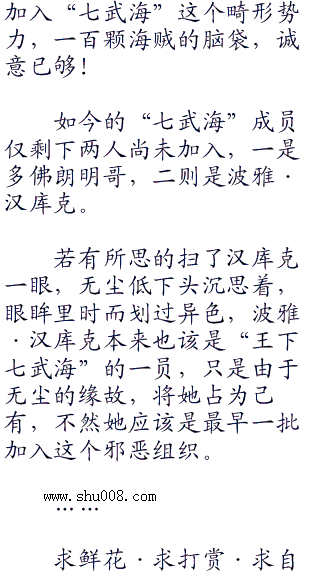 加入“七武海”这个畸形势
力，一百颗海贼的脑袋，诚
意已够！
如今的“七武海”成员
仅剩下两人尚未加入，一是
多佛朗明哥，二则是波雅·
汉库克。
若有所思的扫了汉库克
一眼，无尘低下头沉思着，
眼眸里时而划过异色，波雅
·汉库克本来也该是“王下
七武海”的一员，只是由于
无尘的缘故，将她占为己
有，不然她应该是最早一批
加入这个邪恶组织。
www.shu008.com
……
求鲜花·求打赏·求自